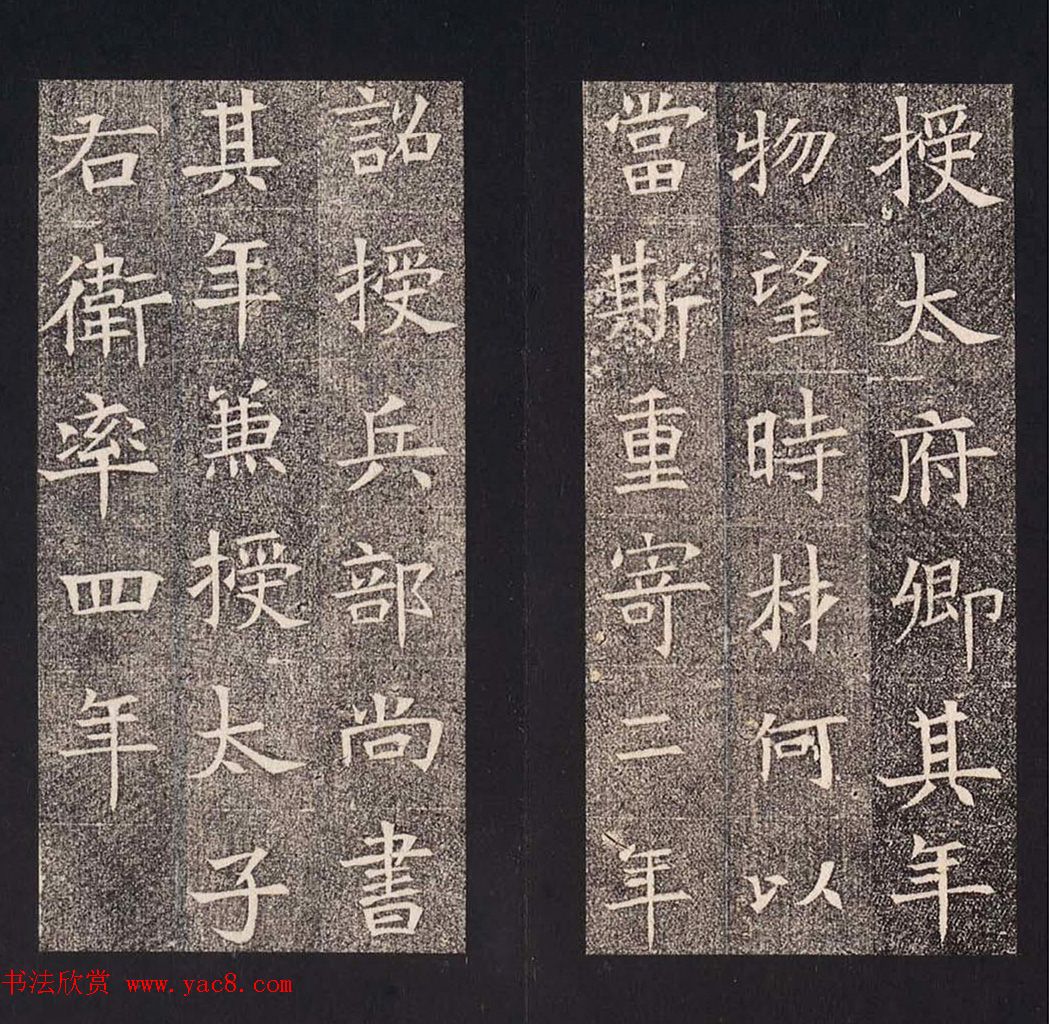 授太府卿其年
物望時材何以
當斯重寄二年
詔授兵部尚書
其年兼授太子
右衛率四年
书法欣赏 www.yac8.com